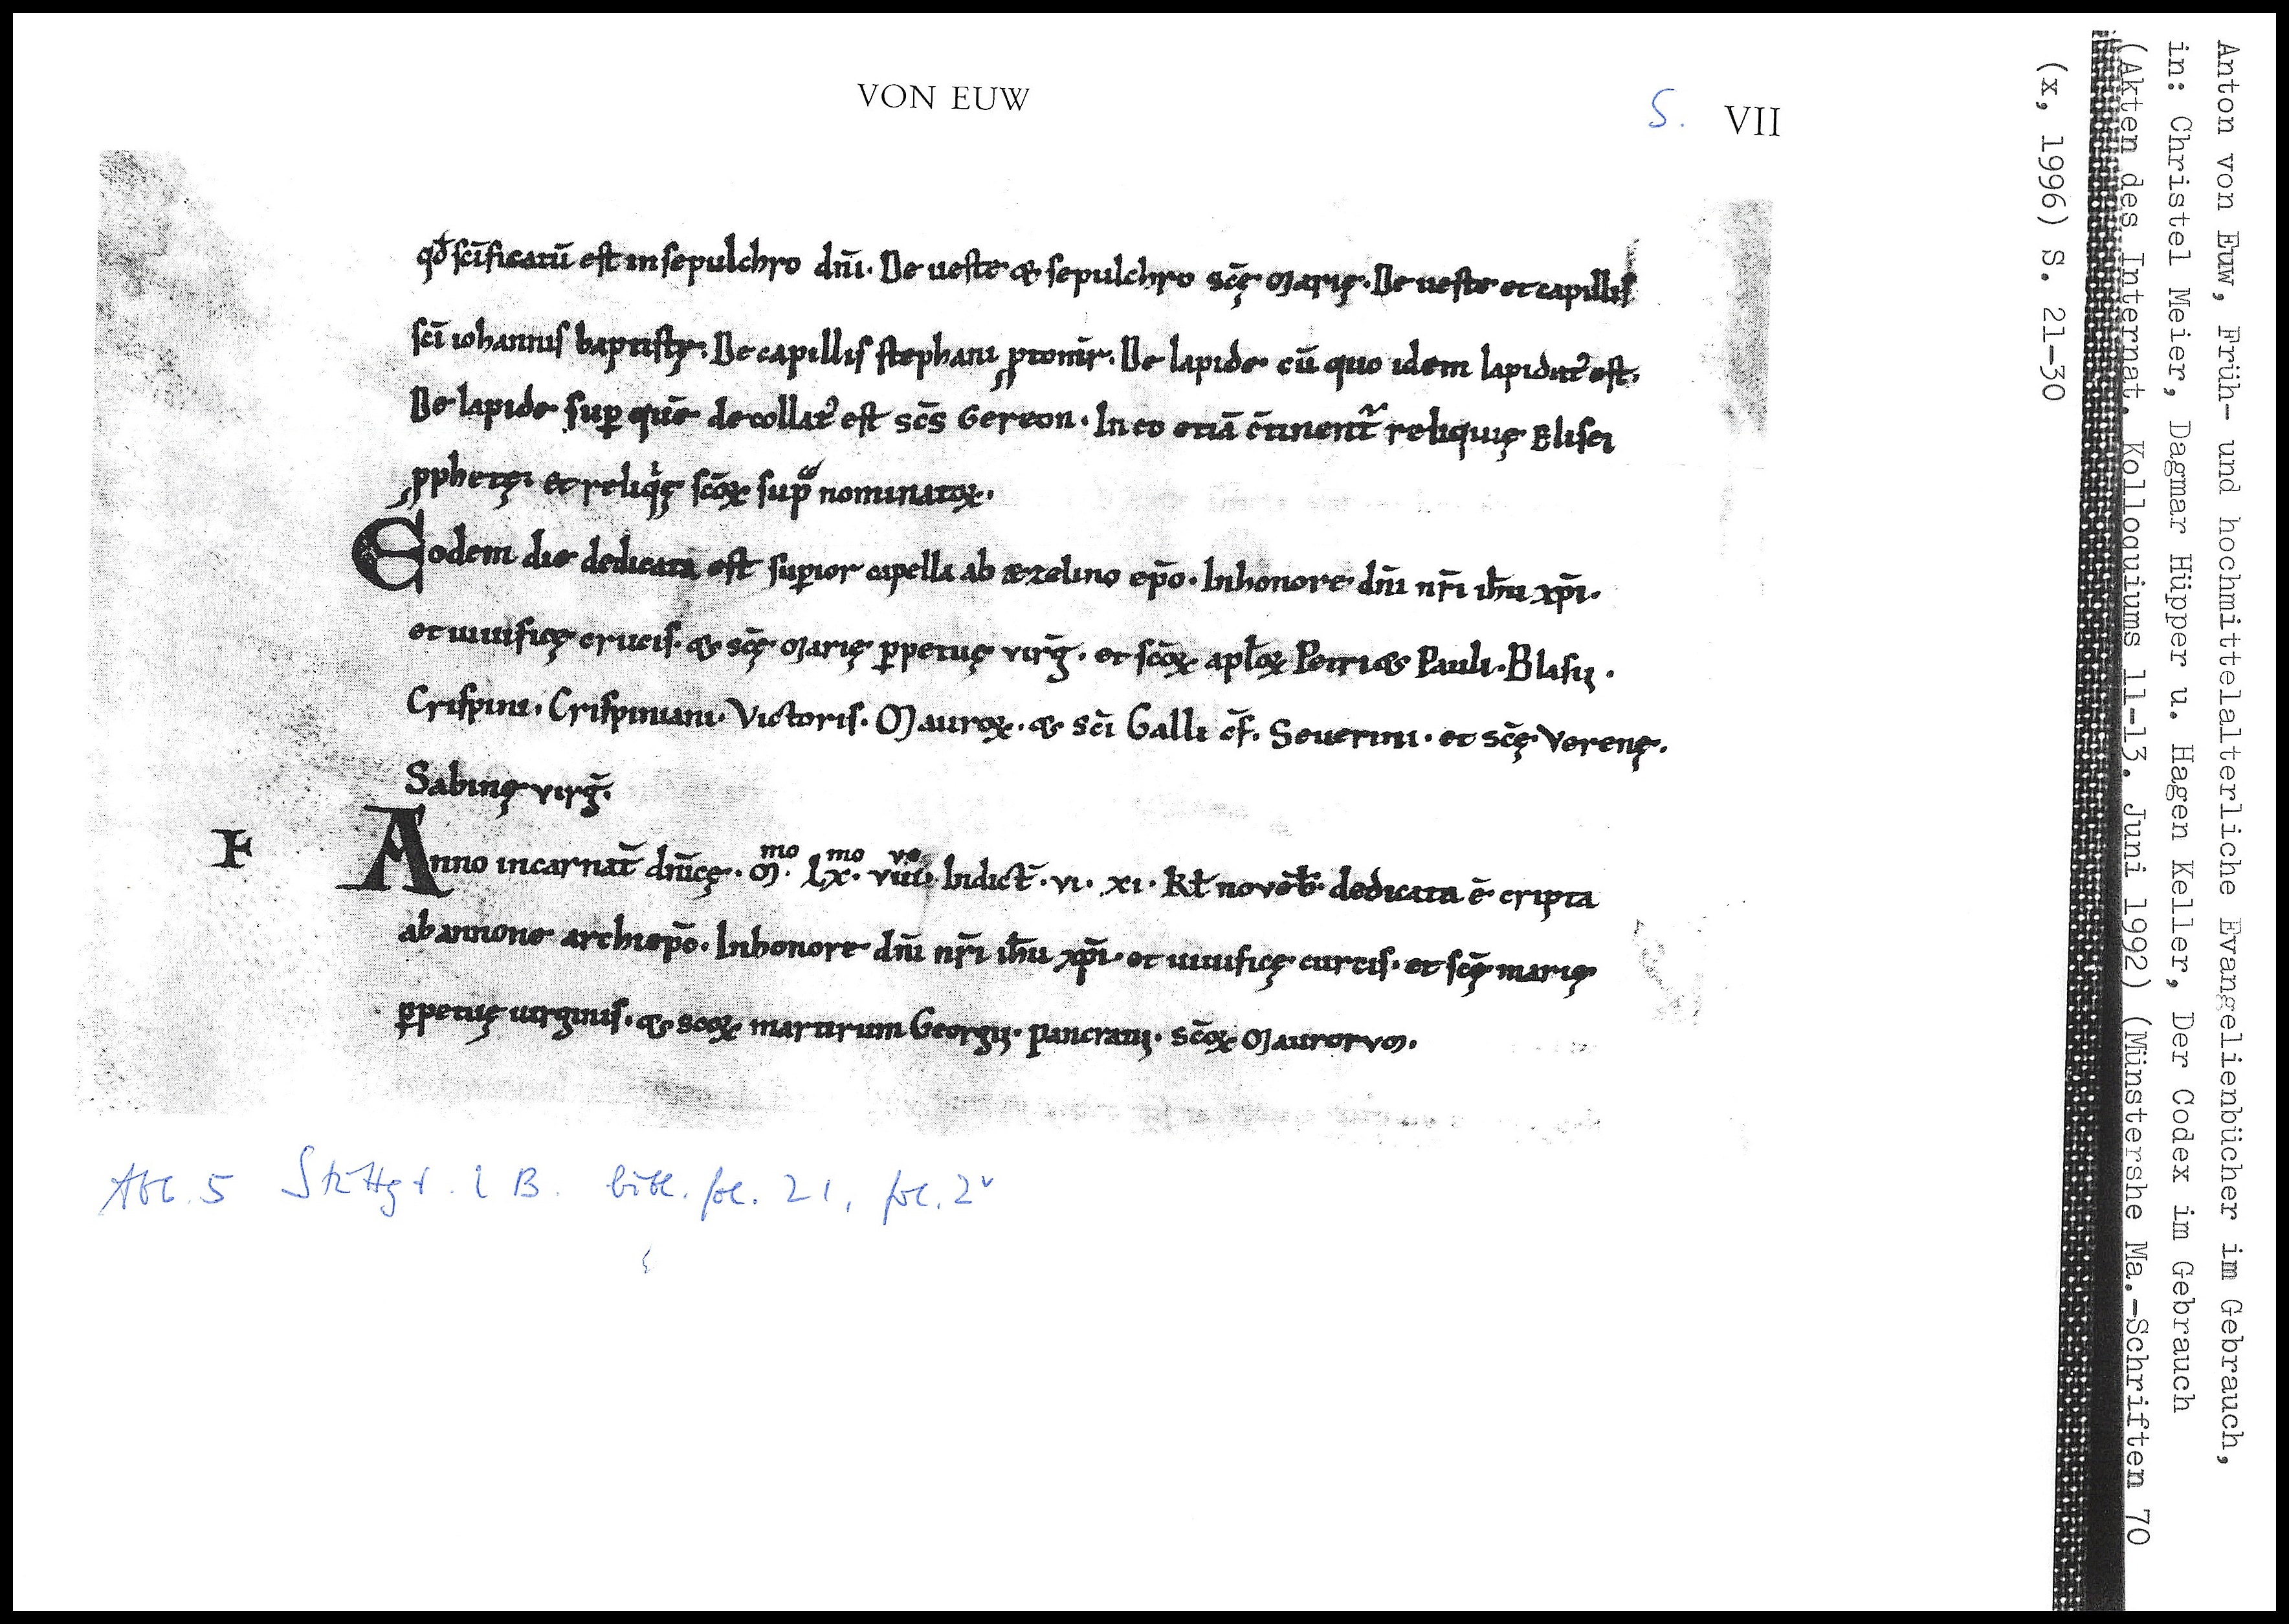 VON EUW
S. VII
qđ scīficatū est in sepulchro dn̄i. De ueste & sepulchro scę̄ Marię. De ueste et capillis
scī iohannis baptistę. De capillis stephani ꝓtom̄r. De lapide cū quo idem lapidatꝰ est.
De lapide suꝑ quē decollatꝰ est sc̄s Gereon. In eo etiā c̄tinent᷑ reliquię Elisei
ꝓphetę. et reliqͥę scōꝝ supᷓ nominatoꝝ.
Eodem die dedicata est suꝑior capella ab ezelino ep̄o. In honore dn̄i nr̄i ih̄u xp̄i.
et uiuificę crucis. & scę̄ Marię ꝑpetuę virḡ. et scōꝝ apl̄oꝝ Petri & Pauli. Blasij.
Crispini. Crispiniani. Victoris. Mauroꝝ. & scī Galli c̄f. Seuerini. et scę̄ Verenę.
Sabinę virḡ.
F Anno incarnat̄ dn̄icę. M.ᵐᵒ Lx.ᵐᵒ viiii.ᵛᵒ Indict̄. vi. xi. kł novēb̄. dedicata ē cripta
ab annone archiep̄o. In honore dn̄i nr̄i ih̄u xp̄i. et uiuificę curcis. et scę̄ marię
ꝑpetuę uirginis. & scoꝝ martirum Georgij. pancratij. scōꝝ Maurorum.
Abb. 5 Stuttgt. LB. bibl. fol. 21, fol. 2v
Anton von Euw, Früh- und hochmittelalterliche Evangelienbücher im Gebrauch,
in: Christel Meier, Dagmar Hüpper u. Hagen Keller, Der Codex im Gebrauch
(Akten des Internat. Kolloquiums 11-13. Juni 1992) (Münstershe Ma.-Schriften 70
(x, 1996) S. 21-30